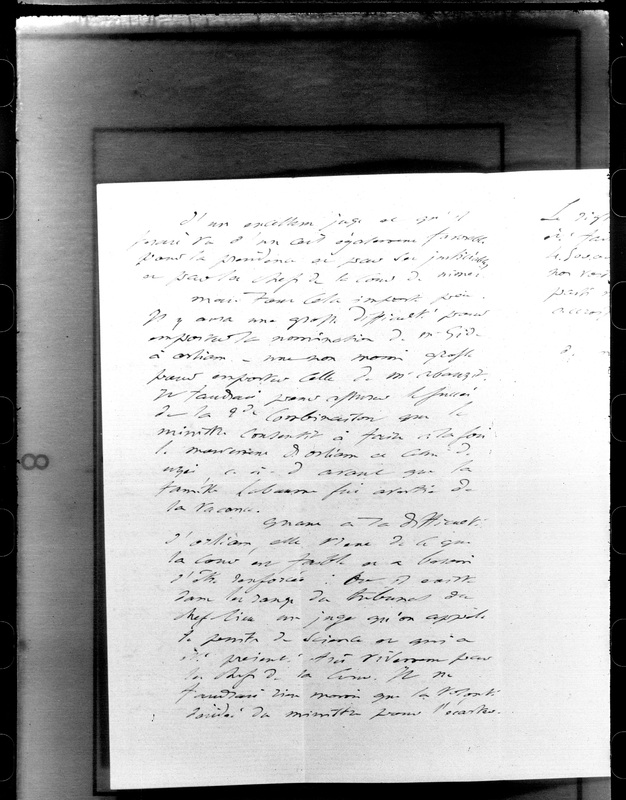 d'un excellent juge et qu'il
serait vu d'un œil également favorable
dans la province et par les justiciables
et par les chefs de la Cour de nimes
mais tout cela importe peu.
Il y aura une grosse difficulté pour
emporter la nomination de mr Gide
à orléans - une non moins grosse
pour emporter celle de mr abauzit.
Il faudrait pour assurer le succès
de la 2de Combinaison que le
ministre consentit à faire à la fois
le mouvement d'orléans et celui d'
uzès c. à. d avant que la
famille fut avertie de
la vacance.
quant à la difficulté
d'orléans, elle vient de ce que
la Cour est faible et a besoin
d'être renforcée : Or il existe
dans les rangs du tribunal du
chef lieu un juge qu'on appelle
de science et qui a
été présenté très vivement par
les chefs de la Cour. Il ne
faudrait rien moins que la volonté
du ministre pour l'écarter.
Le
été
non